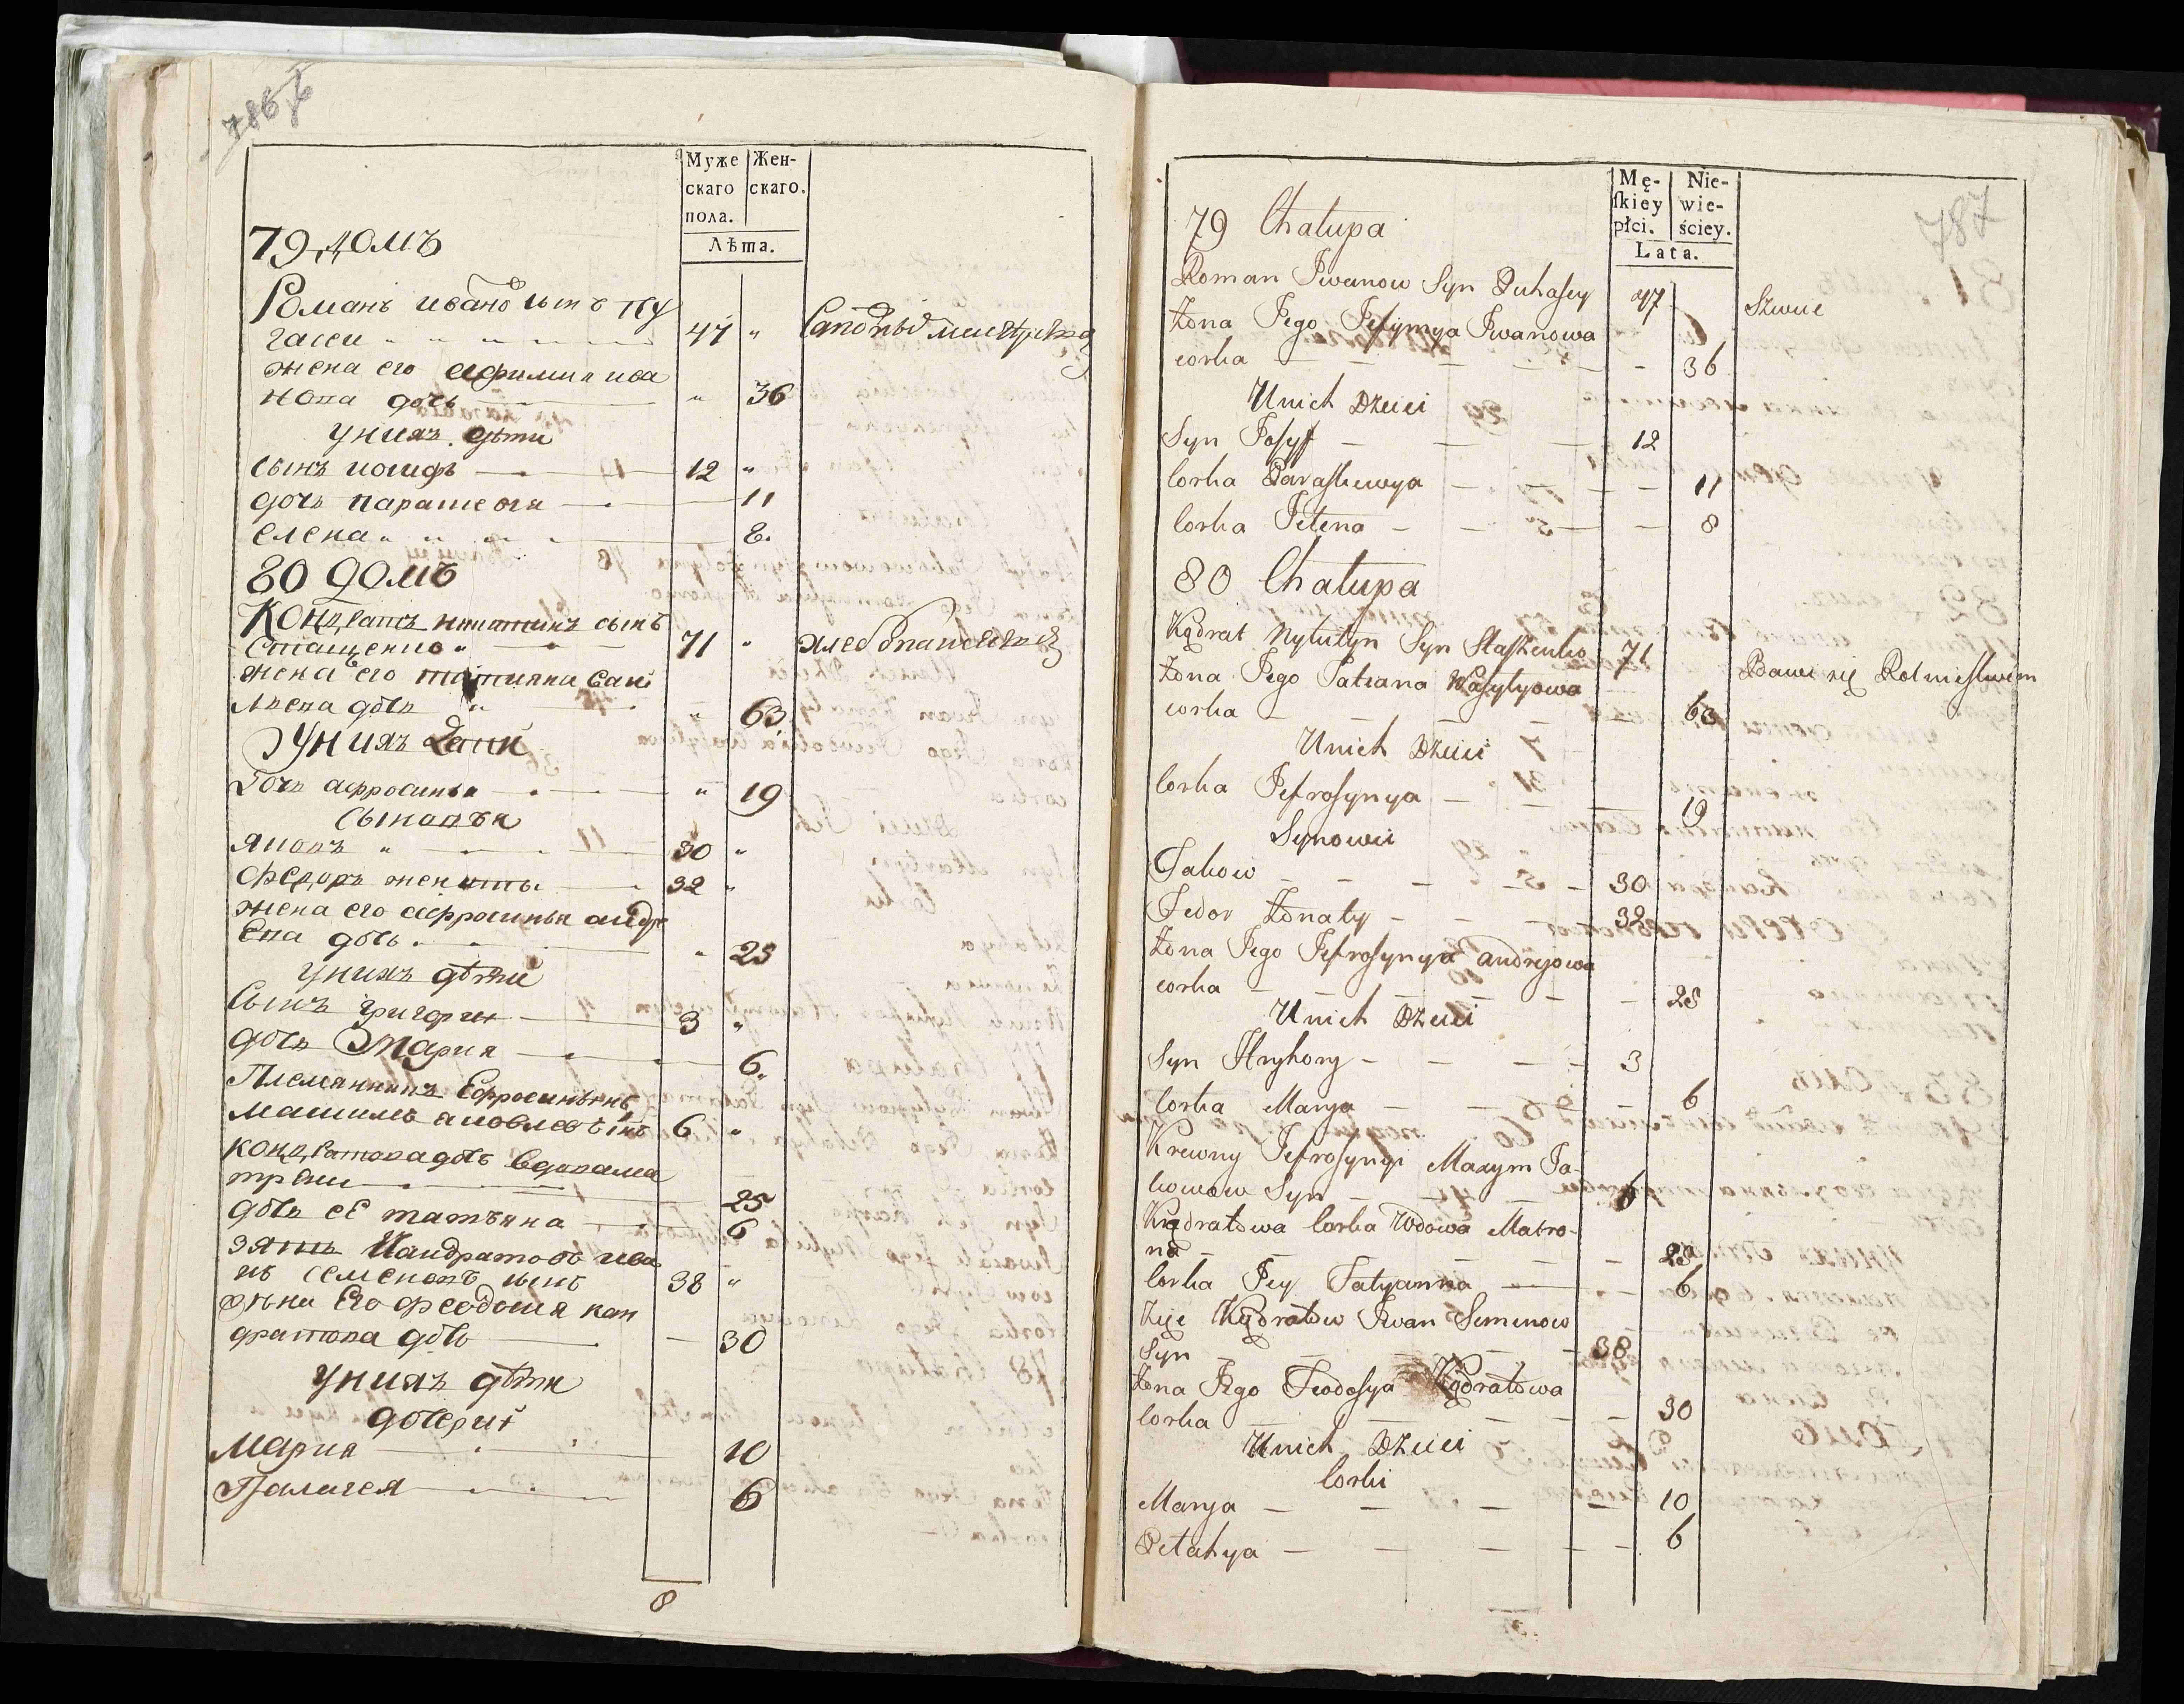 786
Муже
скаго
пола.
Жен-
скаго.
Лѣта.
79 домъ
Романъ Иванов сынъ Пу
гасеи 47 " Сапожны мистерств
жена его Афимия ива
нова дочь " 36
у них дети
сынъ иосифъ 12 "
дочь парасковя 11
елена 8.
80 домъ
Кондратъ никитинъ сынъ
Стащенко 71 " хлебопашествѣ
жена его татияна Васи
лиева дочь " 63
у нихъ дети
дочь афросиня " 19
Сыновья
яковъ " 30 "
Федоръ женаты 32 "
жена его афросиня андре
ева дочь " 25
у нихъ дѣти
Сынъ григори 3 "
дочь Мария 6.
Племянникъ Ефросинин
Максимъ яковлев сынъ 6 "
кондратова дочь вдова ма
трена 25
дочь её татьяна 6
зять Кандратовъ ива
нъ семеновъ сынъ 38 "
жена Его феодосия кан
дратова дочь 30
у нихъ дѣти
дочери
Мария 10
Палагея 6
8
787
Mę-
ſkiey
płci.
Nie-
wie-
ściey.
Lata.
79 Chałupa
Roman Iwanow Syn Puhasey 47 Szewie
Żona Jego Jefymya Iwanowa
corka 36
U nich Dzieci
Syn Josyff 12
Corka Paraskiewya 11
Corka Jelena 8
80 Chałupa
Kądrat Nykityn Syn Staszenko 71 Bawi się Rolnictwem
Żona Jego Tatiana Wasylyowa
corka 63
U nich Dzieci
Corka Jefrosynya 19
Synowie
Jakow 30
Fedor Żonaty 32
Żona Jego Jefrosynya andrejowa
corka 25
U nich Dzieci
Syn Hryhory 3
Corka Marya 6
Krewny Jefrosynyi Maxym Ja-
kowow Syn 6
Kądratowa Corka Wdowa Matro-
na 25
Corka Jey Tatyanna 6
Zięć Kądratow Iwan Semenow
Syn 38
Żona Jego Feodosya Kądratowa
Corka 30
U nich Dzieci
Corki
Marya 10
Pelahya 6